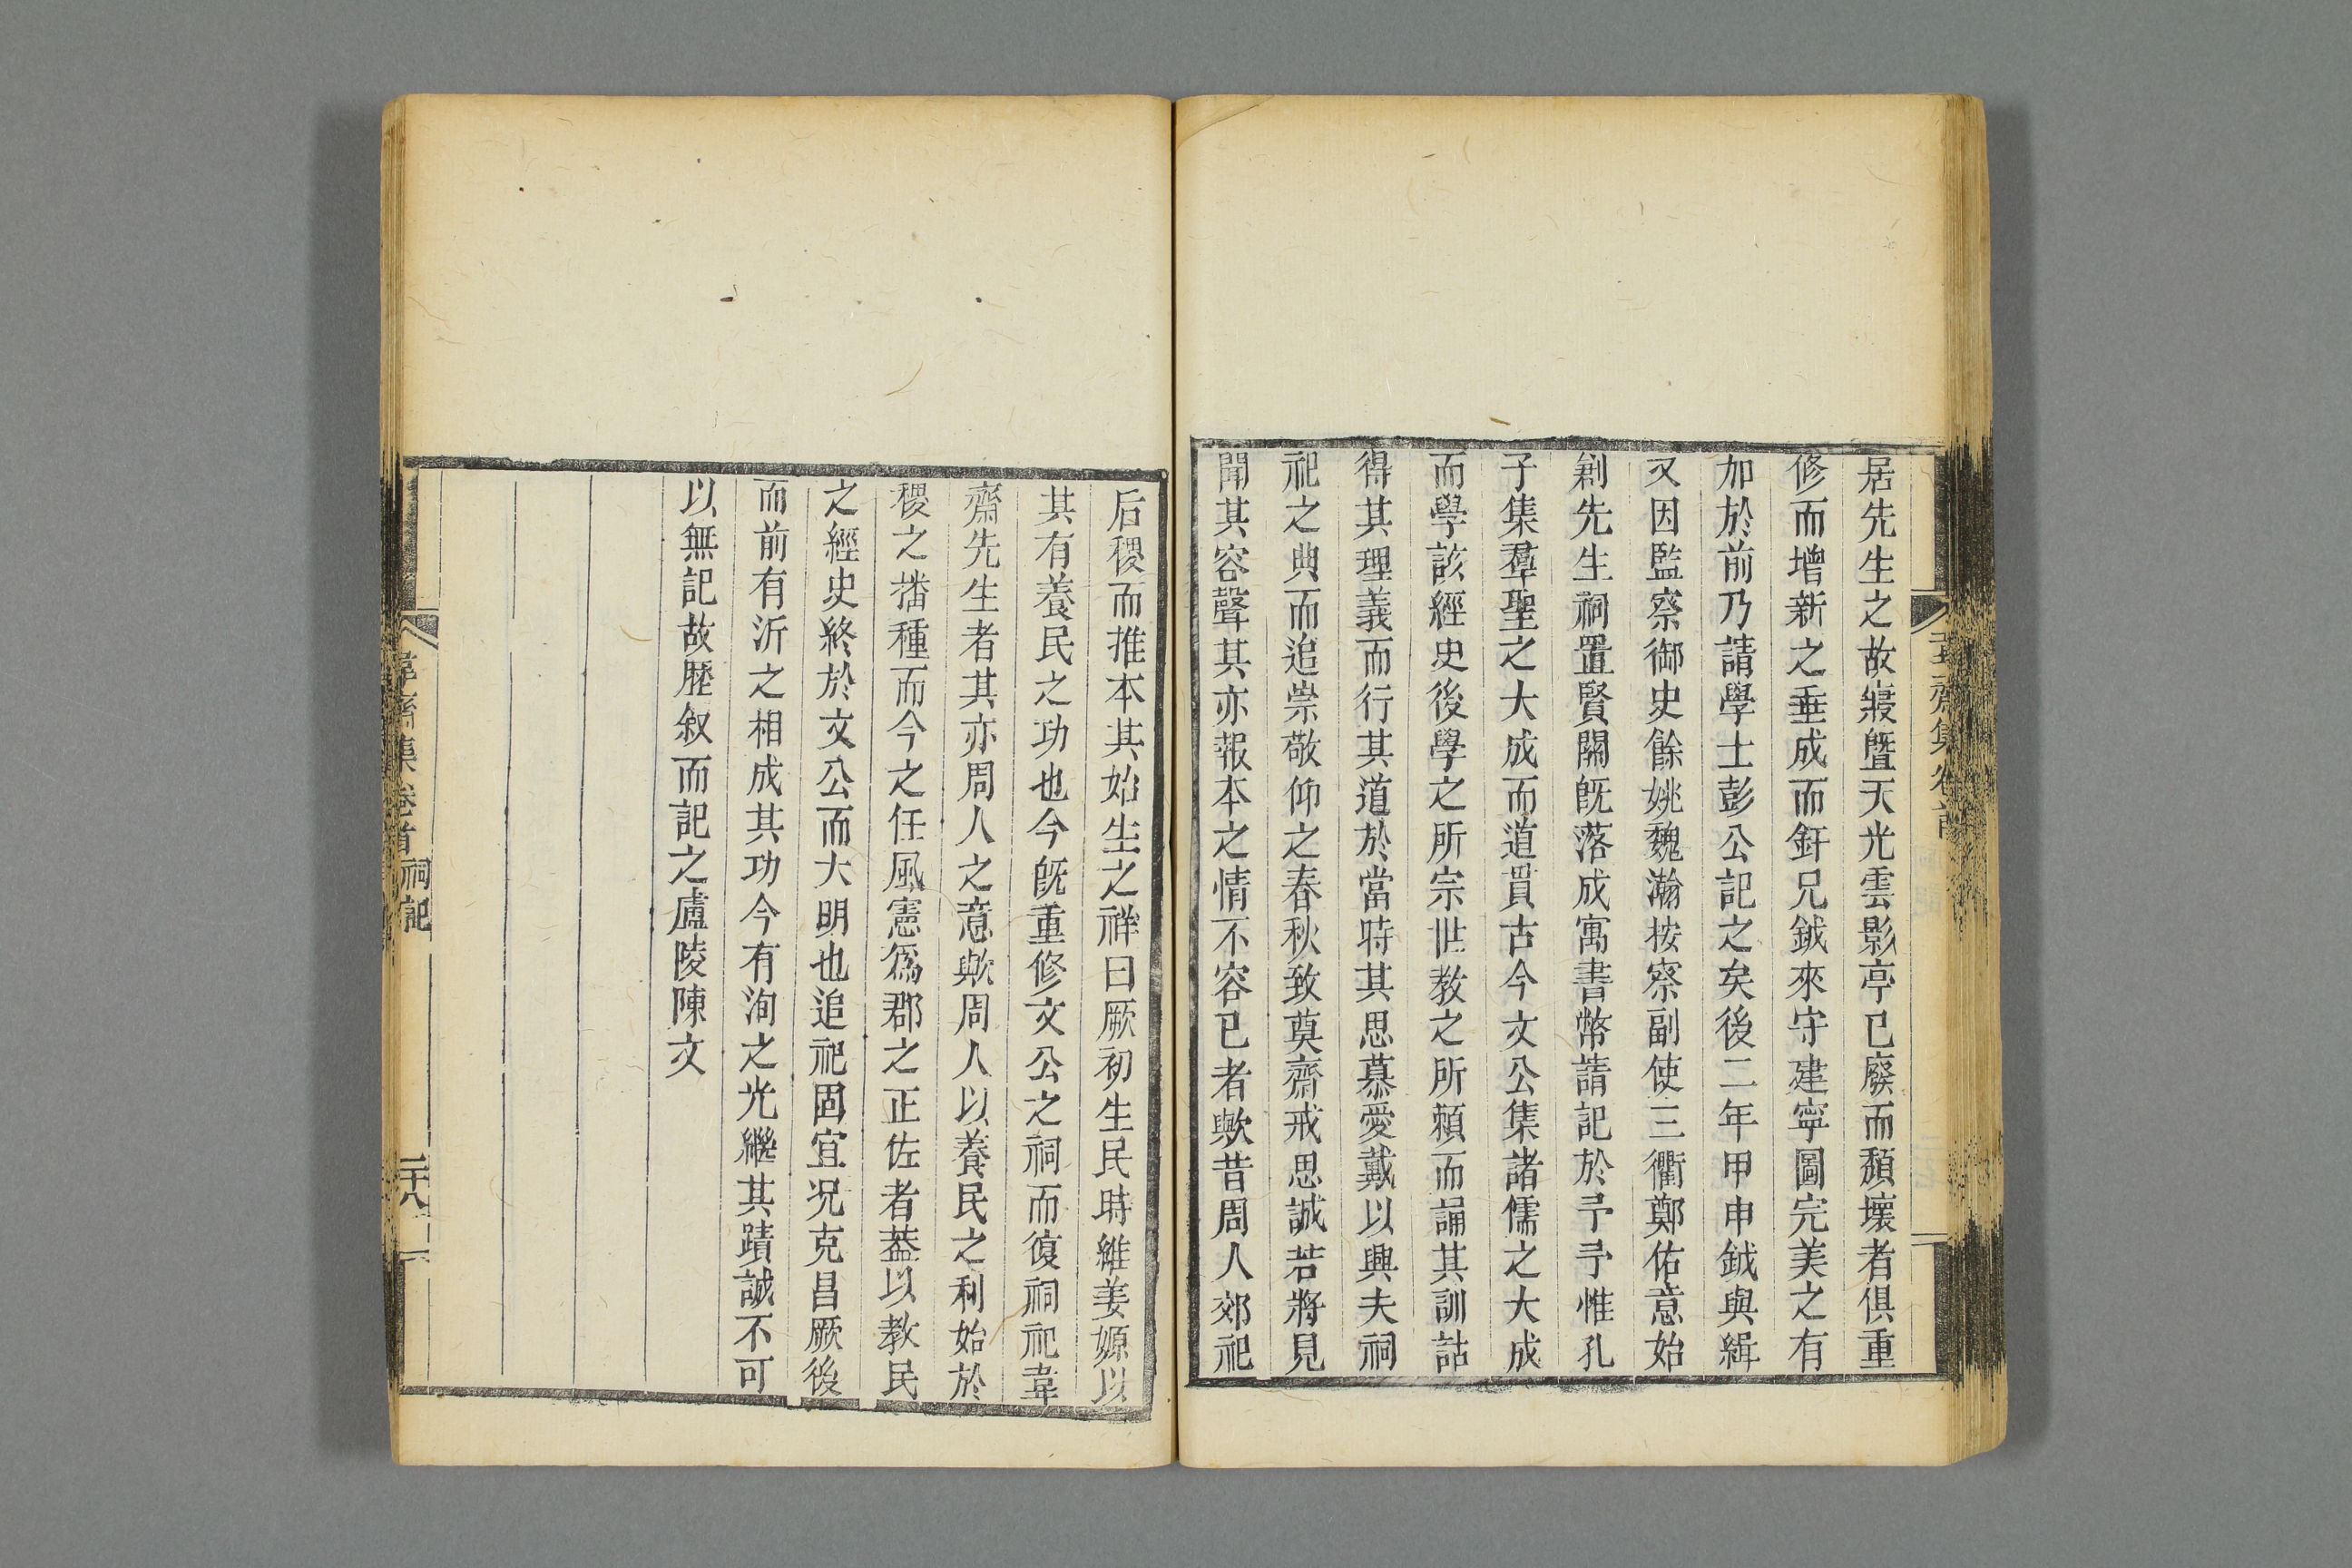 居先生之故寢曁天光雲影亭已廢而頽壞者俱重
修而增新之垂成而釬兄鉞來守建寧圖完美之有
加於前乃請學士彭公記之矣後二年甲申鉞與緝
又因監察御史餘姚魏瀚按察副使三衢鄭佑意始
剏先生祠置賢關旣落成寓書幣請記於予予惟孔
子集羣聖之大成而道貫古今文公集諸儒之大成
而學該經史後學之所宗世教之所賴而誦其訓詁
得其理義而行其道於當時其思慕愛戴以興夫祠
祀之典而追崇敬仰之春秋致奠齋戒思誠若將見
聞其容聲其亦報本之情不容已者歟昔周人郊祀
后稷而推本其始生之祥曰厥初生民時維姜嫄以
其有養民之功也今旣重修文公之祠而復祠祀韋
齋先生者其亦周人之意歟周人以養民之利始於
稷之播種而今之任風憲爲郡之正佐者葢以教民
之經史終於文公而大明也追祀固宜况克昌厥後
而前有沂之相成其功今有洵之光繼其蹟誠不可
以無記故歴叙而記之廬陵陳文
韋齋集卷首 祠記 二十八